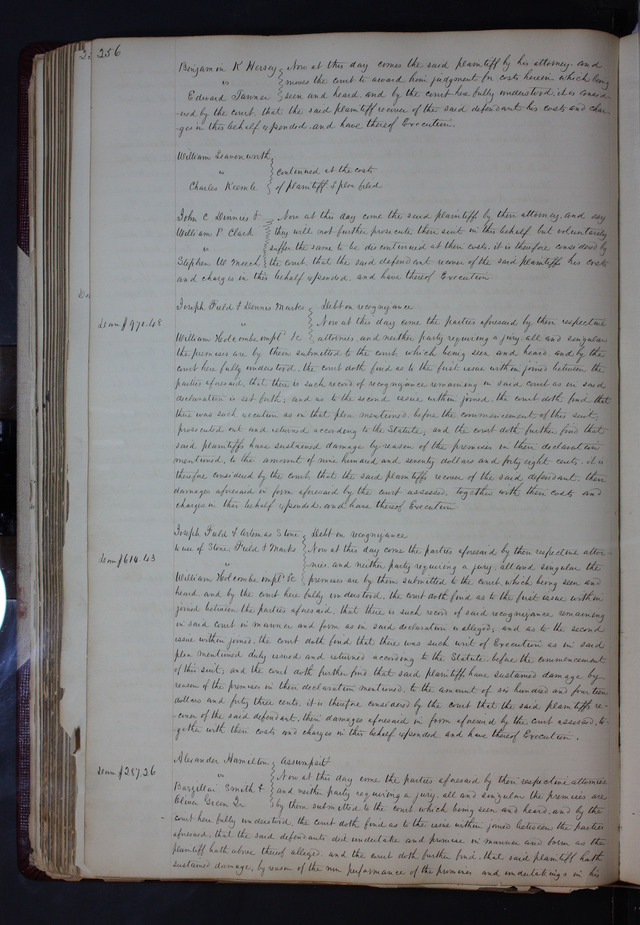 256
Benjamin K Hersey } Now at this day comes the said plaintiff by his attorney and
vs } moves the court to award him judgment for costs herein which being
Edward Tanner } seen and heard and by the court here fully understood, it is consid-
-ered by the court, that the said plaintiff recover of the said defendant his costs and char-
ges in this behalf expended, and have thereof Execution.
William Leavenworth }
vs } continued at the costs
Charles Keemle } of plaintiff & plea filed
John C Dinnies & } Now at this day come the said plaintiff by their attorney, and say
William P Clark } they will not further prosecute their suit in this behalf but voluntarily
vs } suffer the same to be discontinued at their costs, it is therefore considered by
Stephen W Meech } the court that the said defendant recover of the said plaintiffs his costs
and charges in this behalf expended, and have thereof Execution
Joseph Field & Dennis Marks } Debt on recognizance
Dam $970.48
vs } Now at this day come the parties aforesaid by their respective
William Holcombe impld &c } attornies, and neither party requiring a jury, all and singular
the premises are by them submitted to the court, which being seen and heard, and by the
court here fully understood, the court doth find as to the first issue within joined between the
parties aforesaid, that there is such record of recognizance remaining in said court as in said
declaration is set forth, and as to the second issue within joined, the court doth find that
there was such execution as in that plea mentioned, before the commencement of this suit,
prosecuted out and returned according to the Statute, and the court doth further find that
said plaintiffs have sustained damage by reason of the premises in their declaration
mentioned, to the amount of nine hundred and seventy dollars and forty eight cents, it is
therefore considered by the court, that the said plaintiffs recover of the said defendant, their
damages aforesaid in form aforesaid by the court assessed, together with their costs and
charges in this behalf expended, and have thereof Execution
Joseph Field & Artemas Stone } Debt on recognizance
to use of Stone, Field & Marks } Now at this day come the parties aforesaid by their respective attor-
Dam $614.43
vs } nies, and neither party requiring a jury, all and singular the
William Holcombe impld &c } premises are by them submitted to the court, which being seen and
heard, and by the court here fully understood, the court doth find as to the first issue within
joined between the parties aforesaid, that there is such record of said recognizance remaining
in said court in manner and form as in said declaration is alleged, and as to the second
issue within joined, the court doth find that there was such writ of Execution as in said
plea mentioned, duly issued and returned according to the Statute, before the commencement
of this suit, and the court doth further find that said plaintiffs have sustained damage by
reason of the premises in their declaration mentioned, to the amount of six hundred and fourteen
dollars and forty three cents, it is therefore considered by the court that the said plaintiffs re-
cover of the said defendant, their damages aforesaid in form aforesaid by the court assessed, to-
gether with their costs and charges in this behalf expended and have thereof Execution.
Alexander Hamilton } Assumpsit
Dam $287.36
vs } Now at this day come the parties aforesaid by their respective attornies
Barzillai Smith & } and neither party requiring a jury, all and singular the premises are
Green Jr } by them submitted to the court, which being seen and heard, and by the
court here fully understood, the court doth find as to the issue within joined between the parties
aforesaid, that the said defendants did undertake and promise in manner and form as the
plaintiff hath above thereof alleged, and the court doth further find, that said plaintiff hath
sustained damage, by reason of the non performance of the promises and undertakings in his